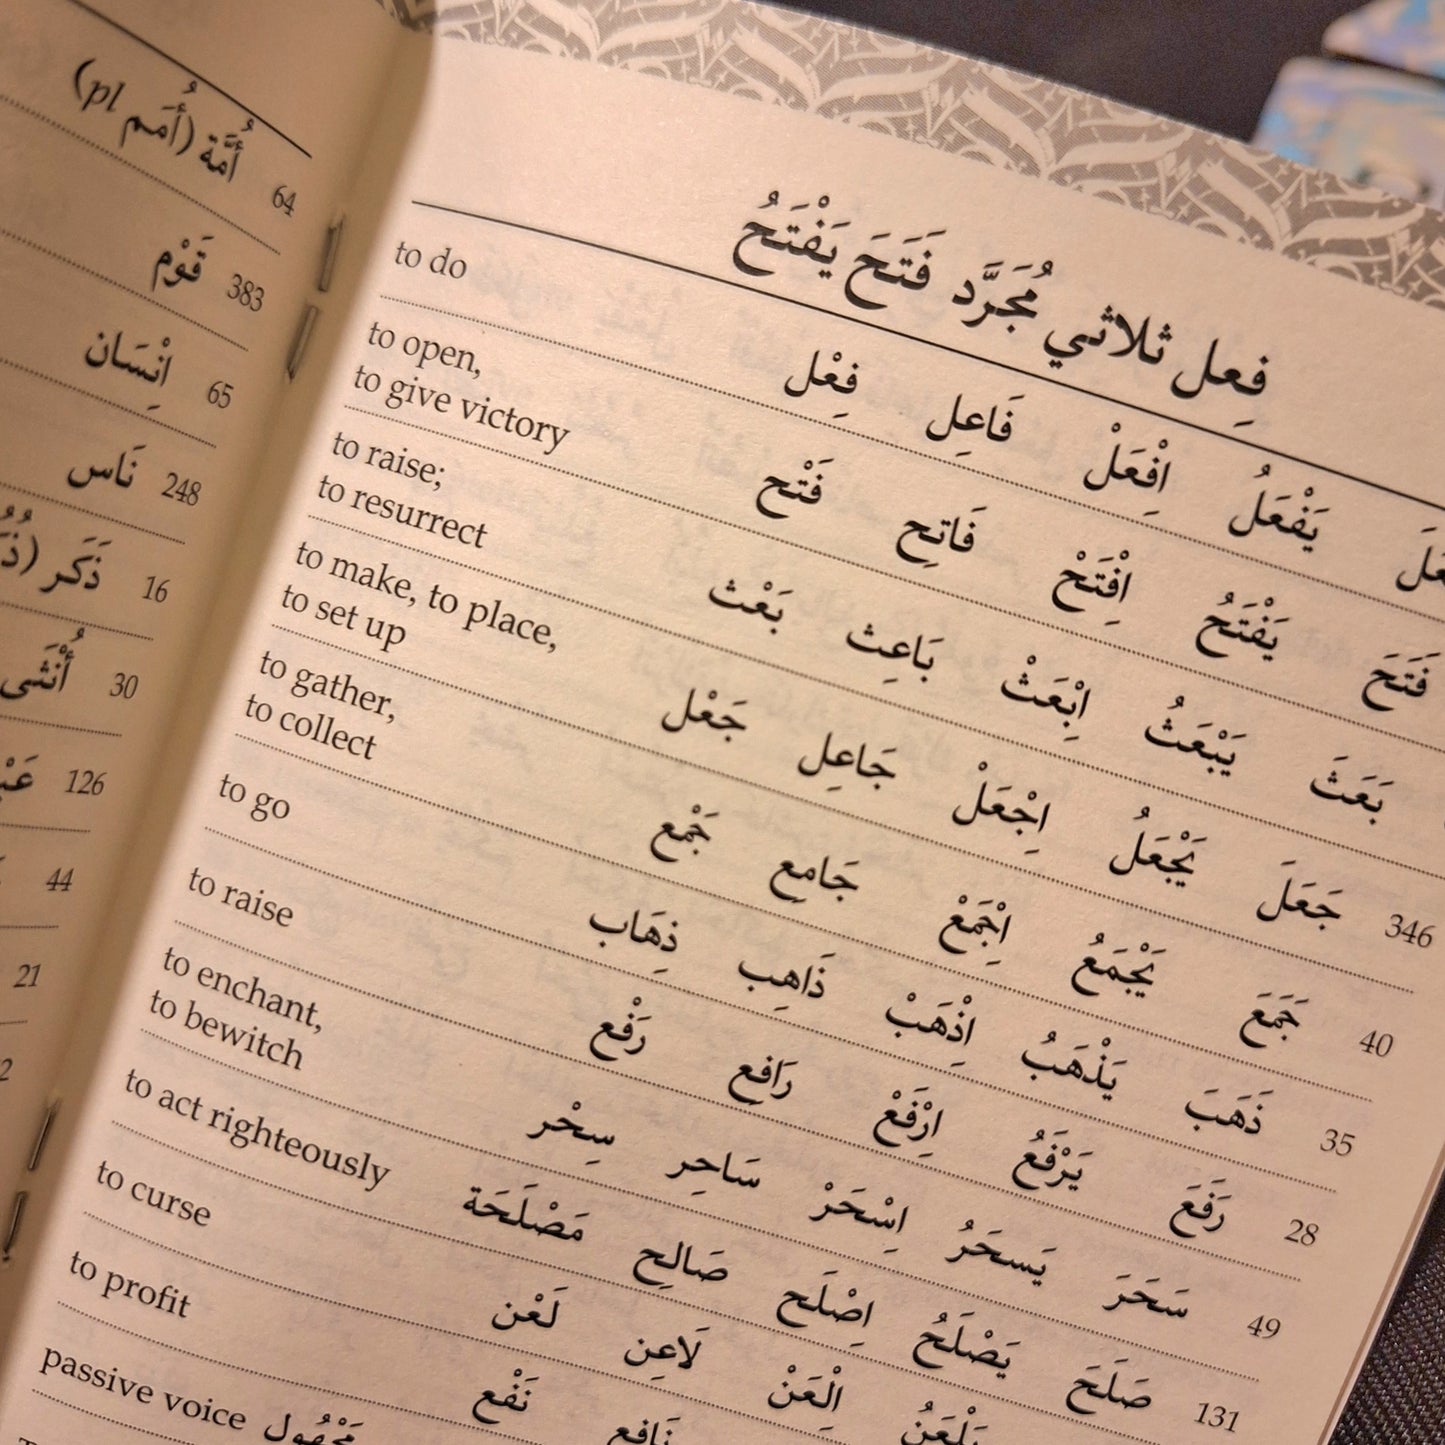 أُمَّة (أُمَم pl) 64
قَوْم 383
اِنْسَان 65
نَاس 248
ذَكَر 16
أُنْثَى 30
126
44
21
فِعل ثلاثي مُجَرَّد فَتَحَ يَفْتَحُ
يَفْعَلُ اِفْعَلْ فَاعِل فِعْل to do
فَتَحَ يَفْتَحُ اِفْتَحْ فَاتِح فَتْح to open,
to give victory
بَعَثَ يَبْعَثُ اِبْعَثْ بَاعِث بَعْث to raise;
to resurrect
346 جَعَلَ يَجْعَلُ اِجْعَلْ جَاعِل جَعْل to make, to place,
to set up
40 جَمَعَ يَجْمَعُ اِجْمَعْ جَامِع جَمْع to gather,
to collect
35 ذَهَبَ يَذْهَبُ اِذْهَبْ ذَاهِب ذِهَاب to go
28 رَفَعَ يَرْفَعُ اِرْفَعْ رَافِع رَفْع to raise
49 سَحَرَ يَسحَرُ اِسْحَرْ سَاحِر سِحْر to enchant,
to bewitch
131 صَلَحَ يَصْلَحُ اِصْلَح صَالِح مَصْلَحَة to act righteously
يَلْعَنُ اِلْعَنْ لَاعِن لَعْن to curse
نَافِع نَفْع to profit
مَجْهُول passive voice